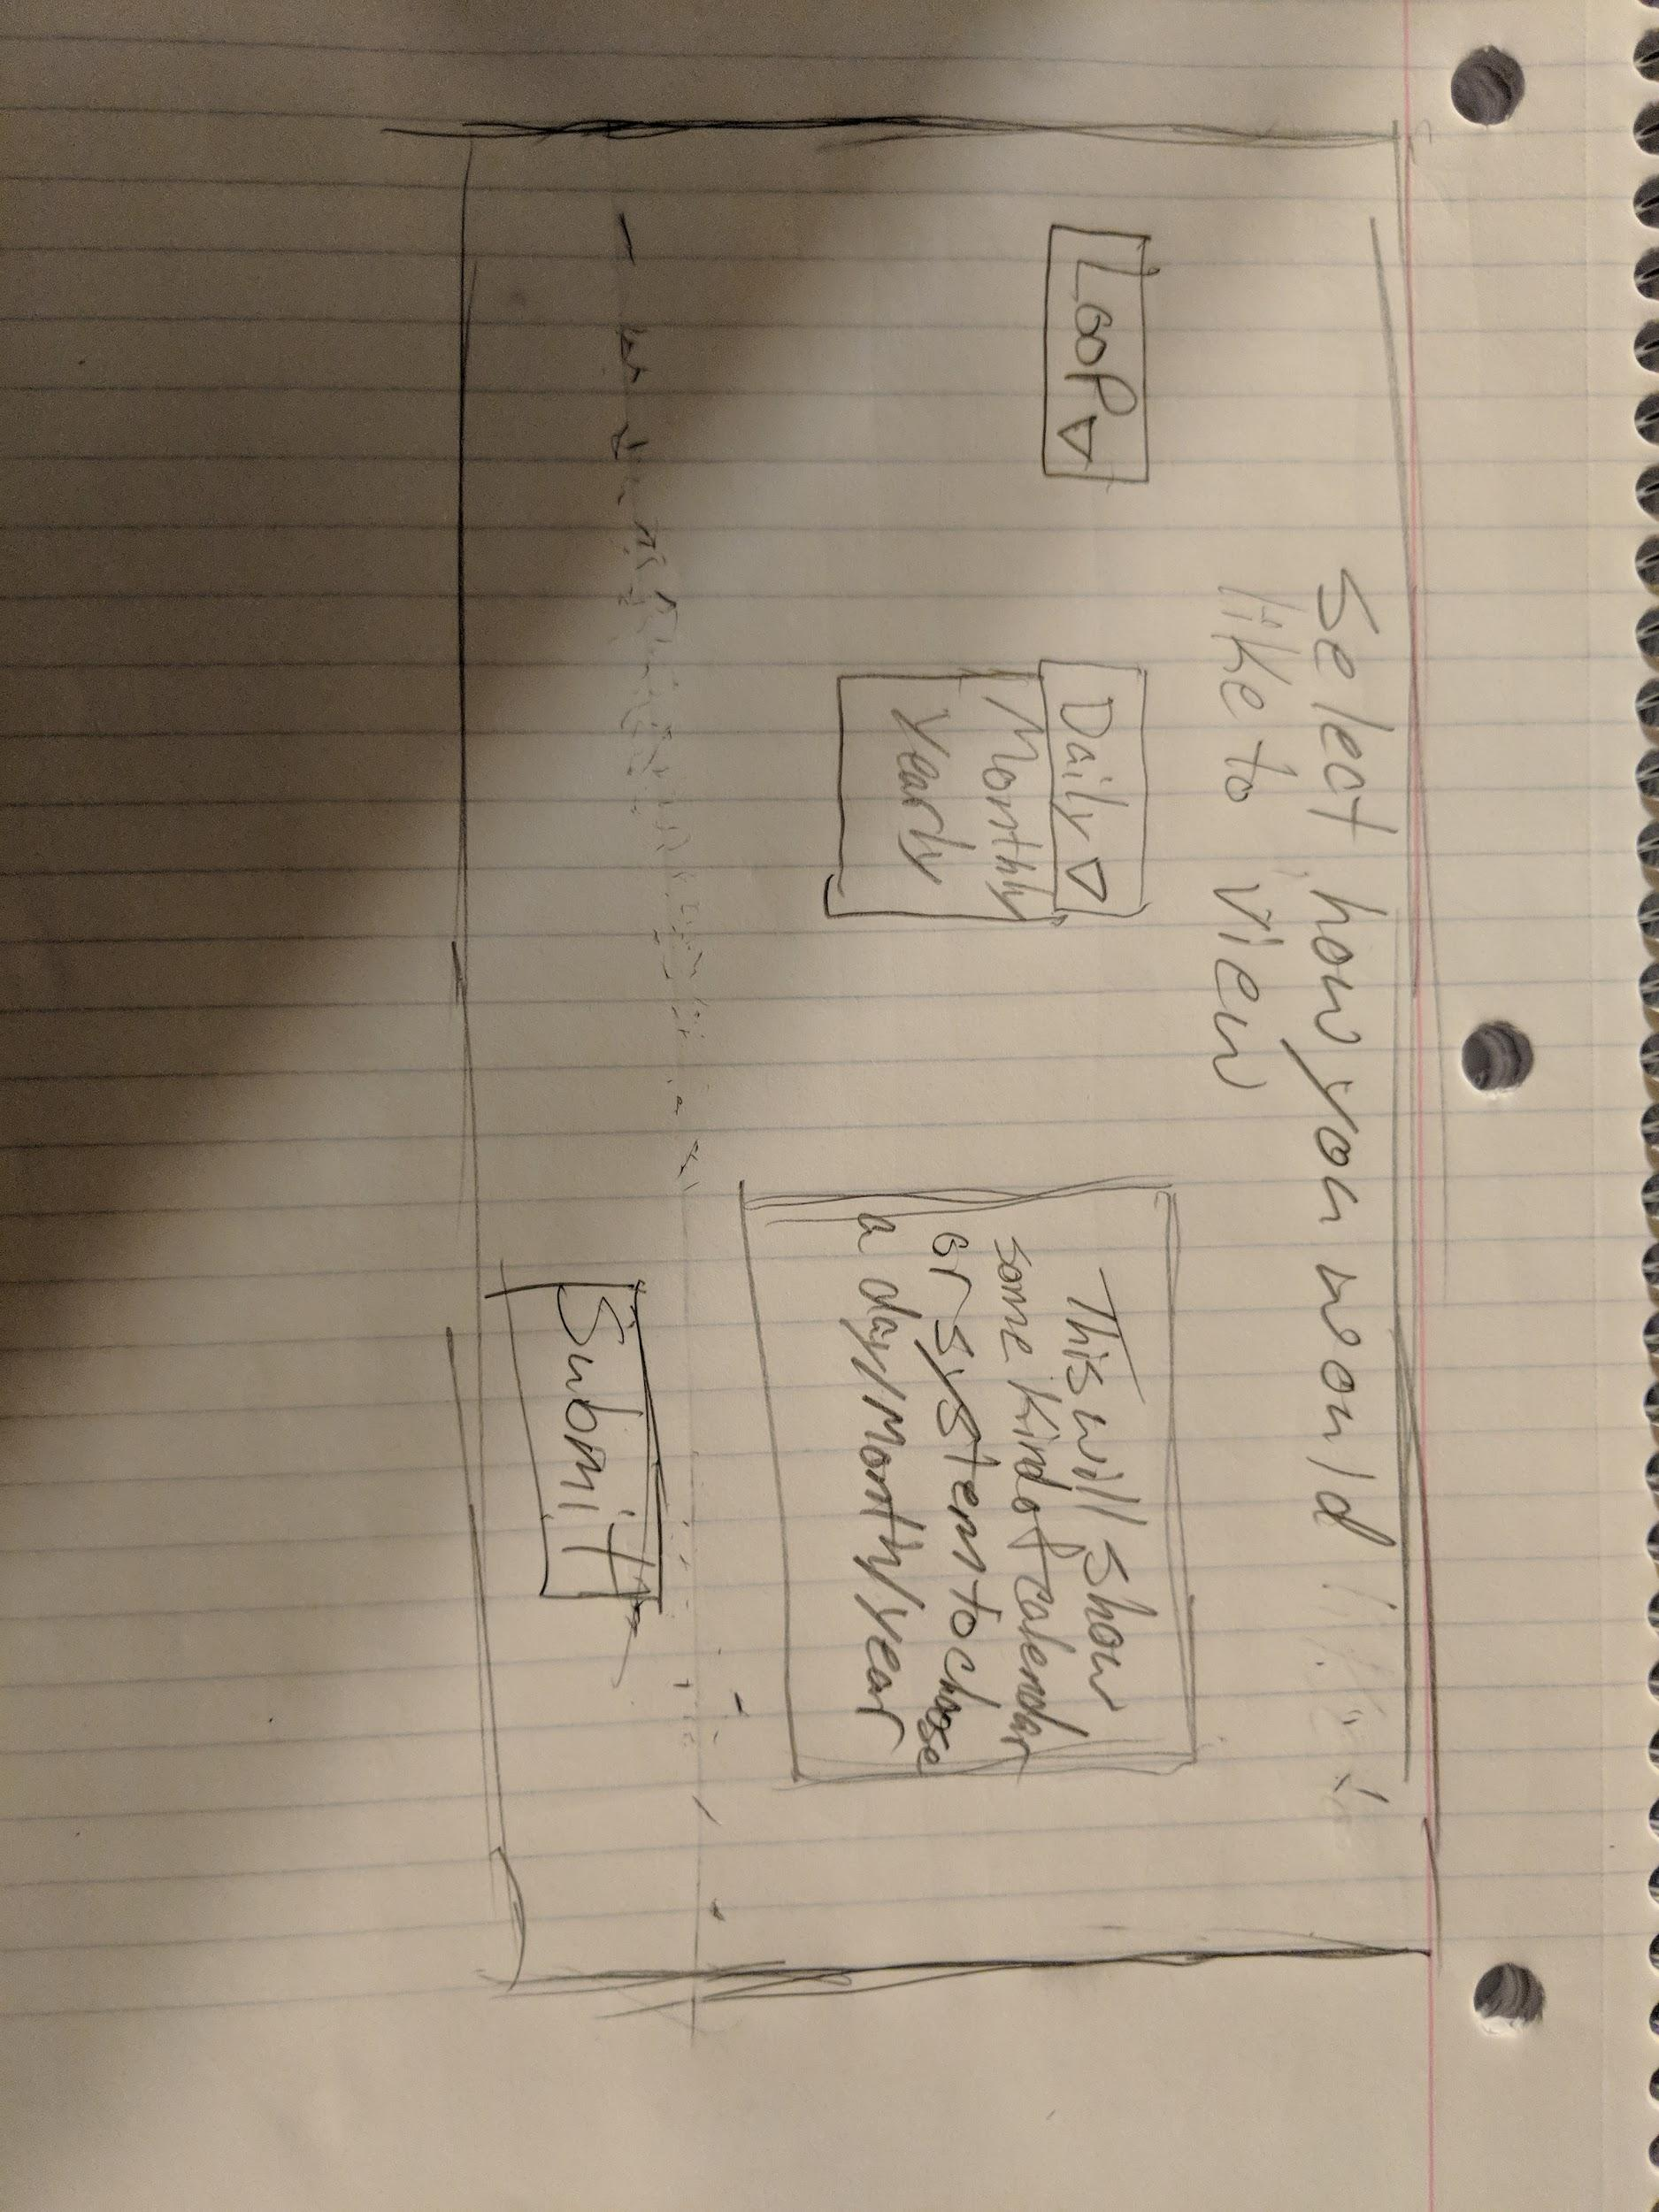 Select how you would
like to view
Loop ▽
Daily ▽
Monthly
Yearly
This will show
some kind of calendar
or system to choose
a day/month/year
Submit